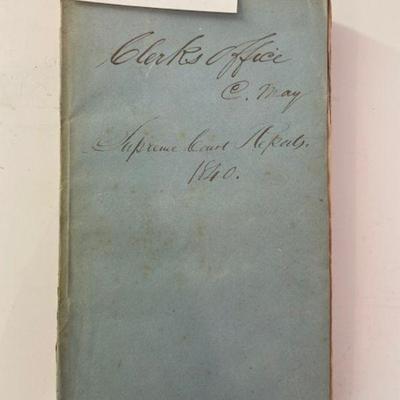 Clerks office
C. May
Supreme Court Reports.
1840.